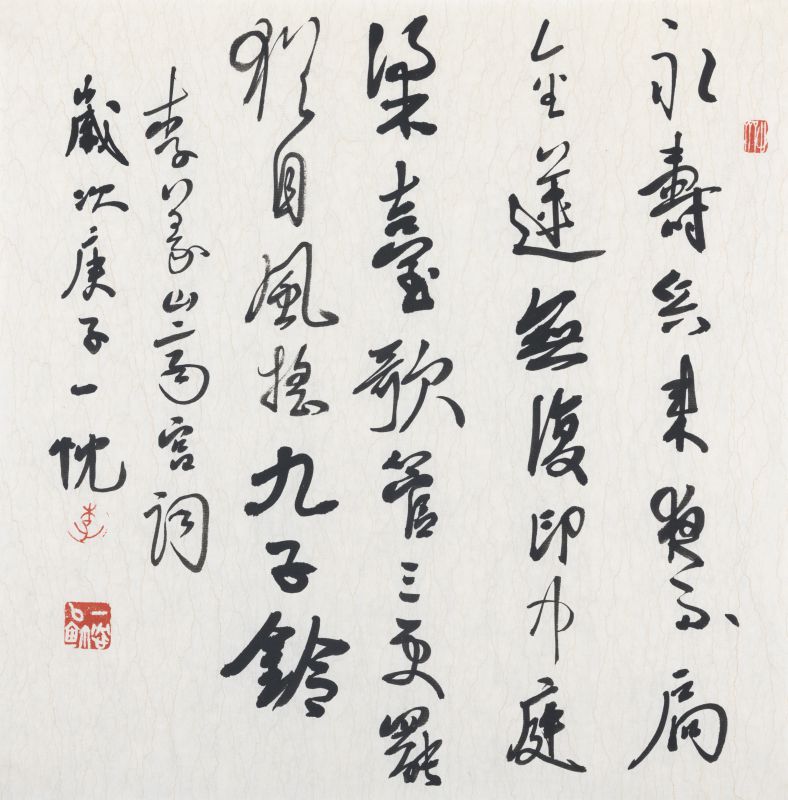 永壽兵來夜不扃
金蓮無復印中庭
梁臺歌管三更罷
猶自風搖九子鈴
李義山齊宮詞
歲次庚子一忱
李